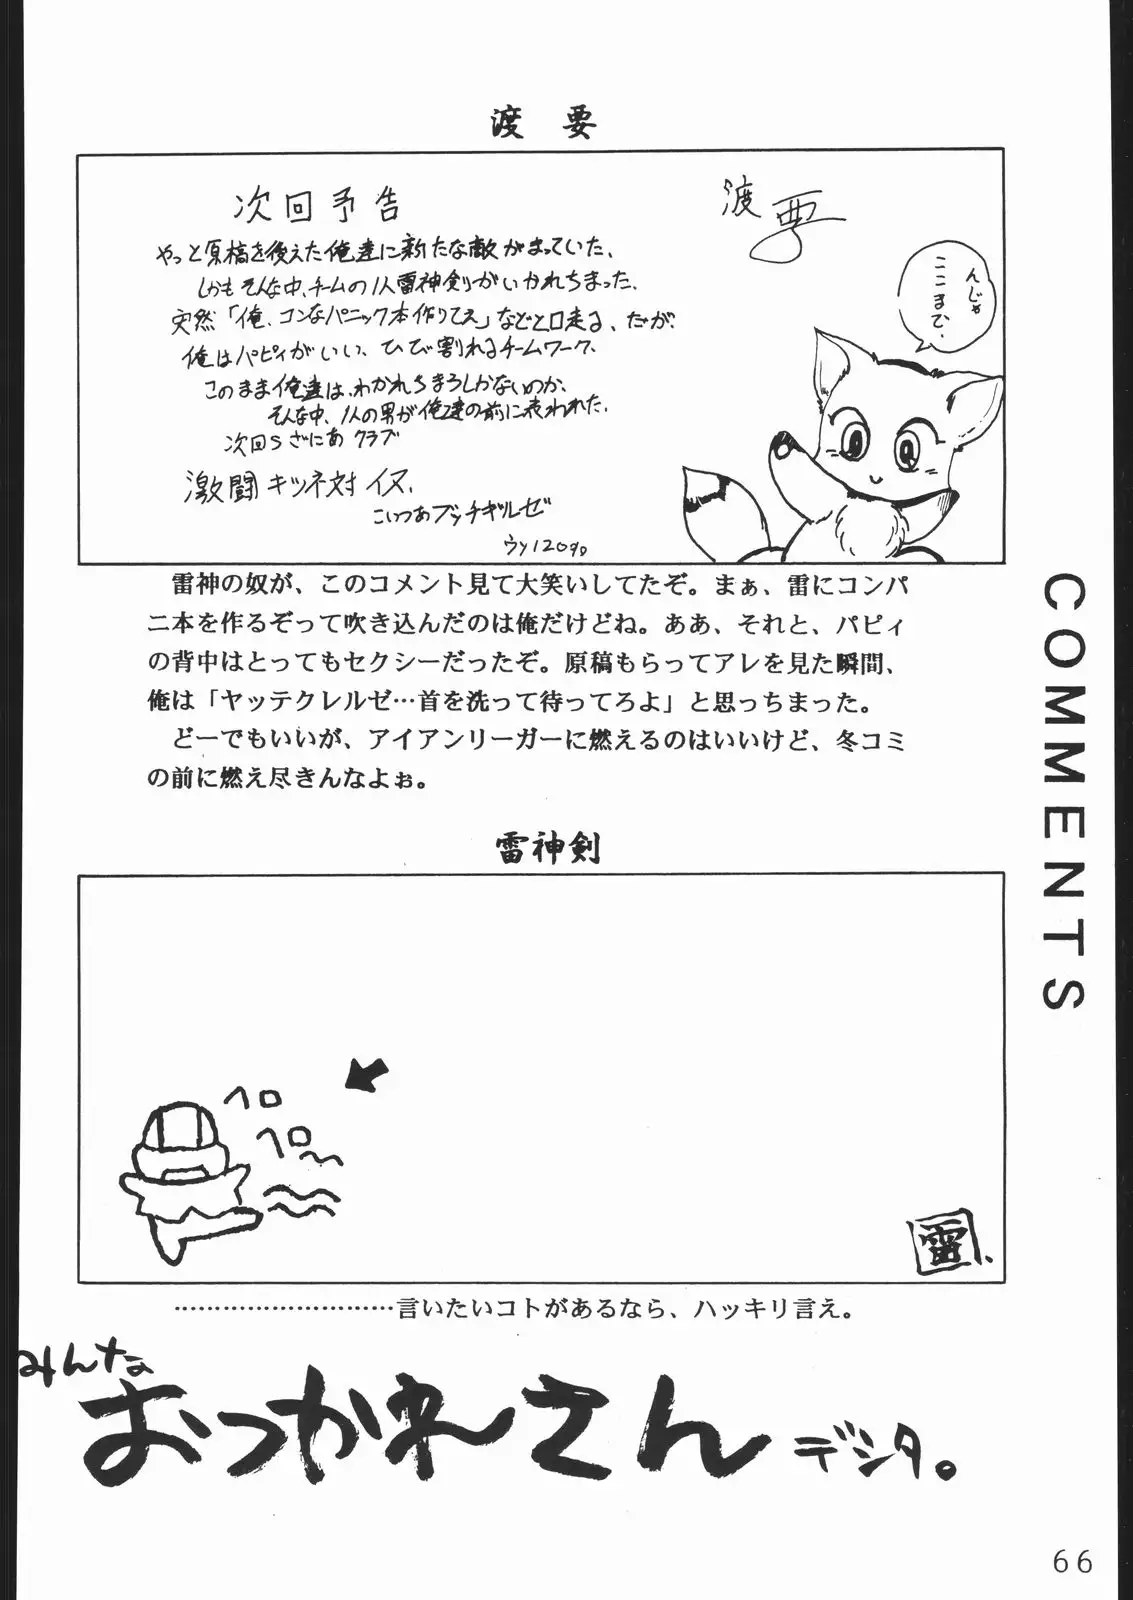 渡 要
次回予告
渡 要
やっと原稿を終えた俺達に新たな敵がまっていた、
しかもそんな中、チームの1人雷神剣がいかれちまった、
突然「俺、コンなパニック本作りてえ」などと口走る、だが、
俺はパピィがいい、ひび割れるチームワーク、
このまま俺達は、わかれちまうしかないのか、
そんな中、1人の男が俺達の前に表われた、
次回Sざにあクラブ
激闘キツネ対イヌ、
こいつあブッチギルゼ
ウソ120%
んじゃ
ここまで、
雷神の奴が、このコメント見て大笑いしてたぞ。まぁ、雷にコンパ
ニ本を作るぞって吹き込んだのは俺だけどね。ああ、それと、パピィ
の背中はとってもセクシーだったぞ。原稿もらってアレを見た瞬間、
俺は「ヤッテクレルゼ…首を洗って待ってろよ」と思っちまった。
どーでもいいが、アイアンリーガーに燃えるのはいいけど、冬コミ
の前に燃え尽きんなよぉ。
COMMENTS
雷神剣
ヘロ
ヘロ
雷
………………………言いたいコトがあるなら、ハッキリ言え。
みんな
おつかれさん
デシタ。
66